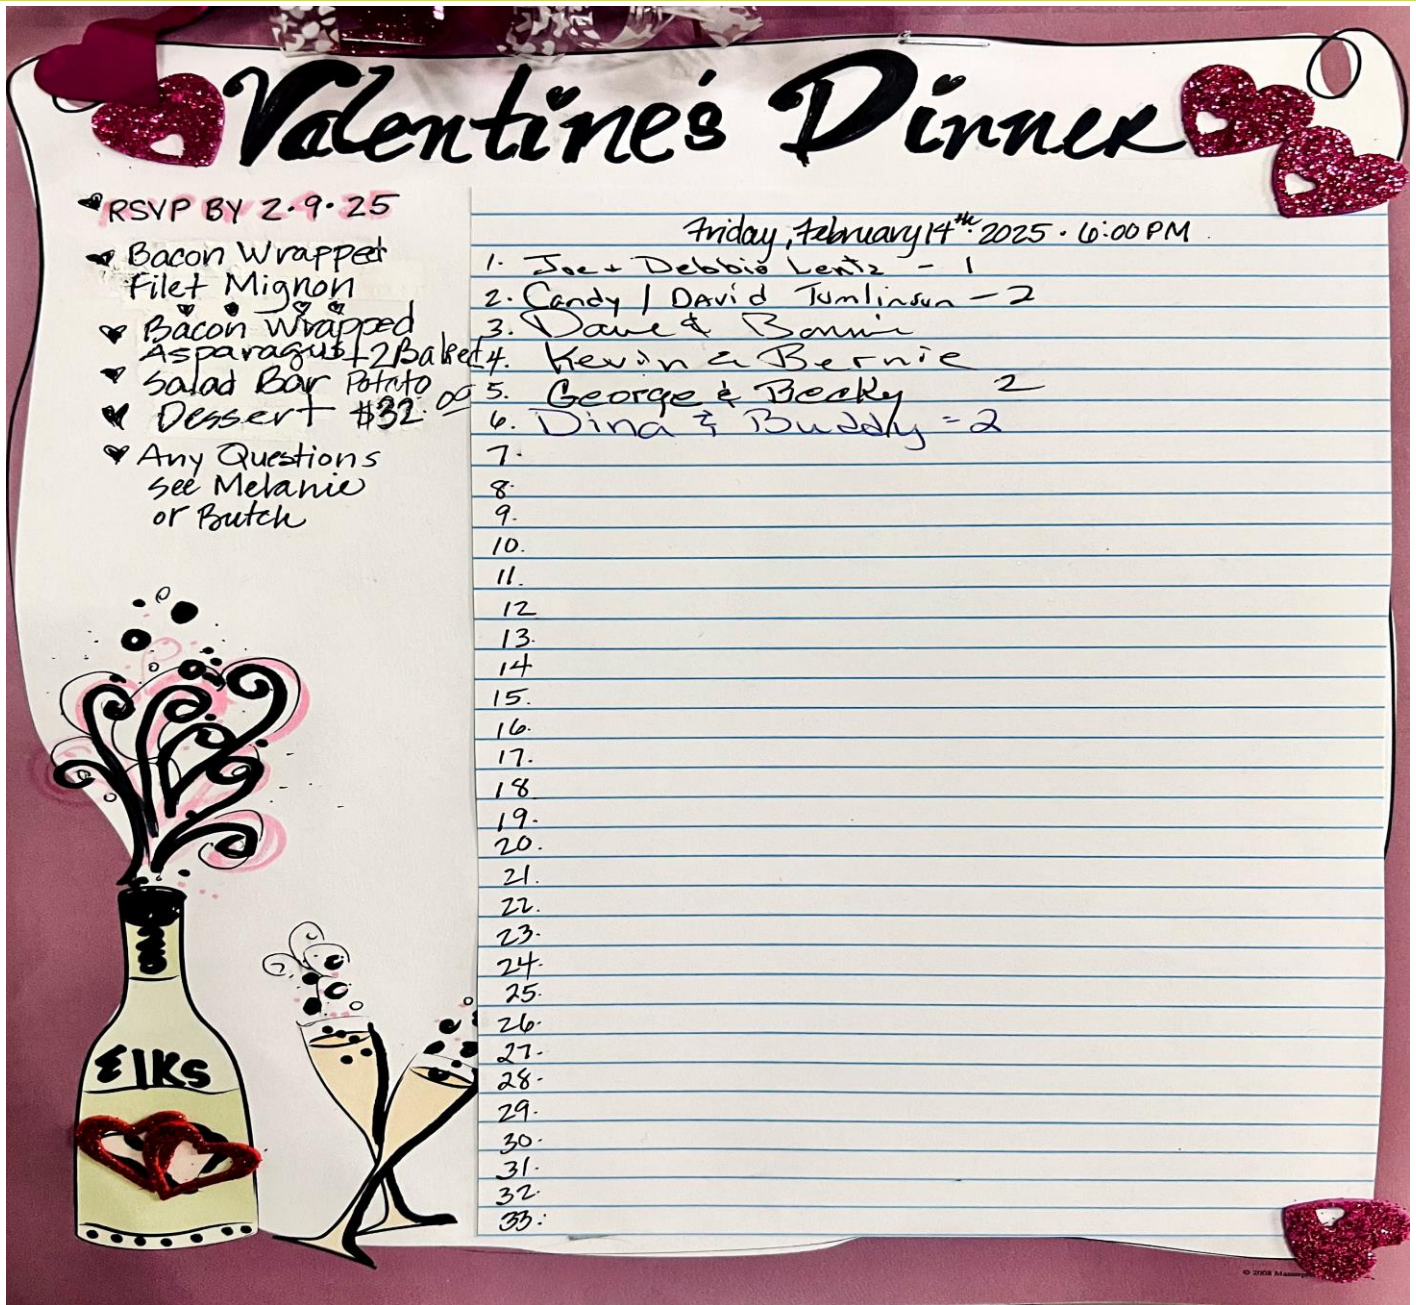 Valentine's Dinner
RSVP BY 2.9.25
Bacon Wrapped
Filet Mignon
Bacon Wrapped
Asparagus + 2 Baked
Salad Bar Potato
Dessert $32.00
Any Questions
see Melanie
or Butch
Elks
Friday, February 14th 2025 · 6:00 PM
1. Joe + Debbie Lentz - 1
2. Candy / David Tumlinson - 2
3. Dave & Bonnie
4. Kevin & Bernie
5. George & Becky 2
6. Dina & Buddy = 2
7.
8.
9.
10.
11.
12
13.
14
15.
16.
17.
18
19.
20.
21.
22.
23.
24.
25.
26.
27.
28.
29.
30.
31.
32.
33.
© 2008